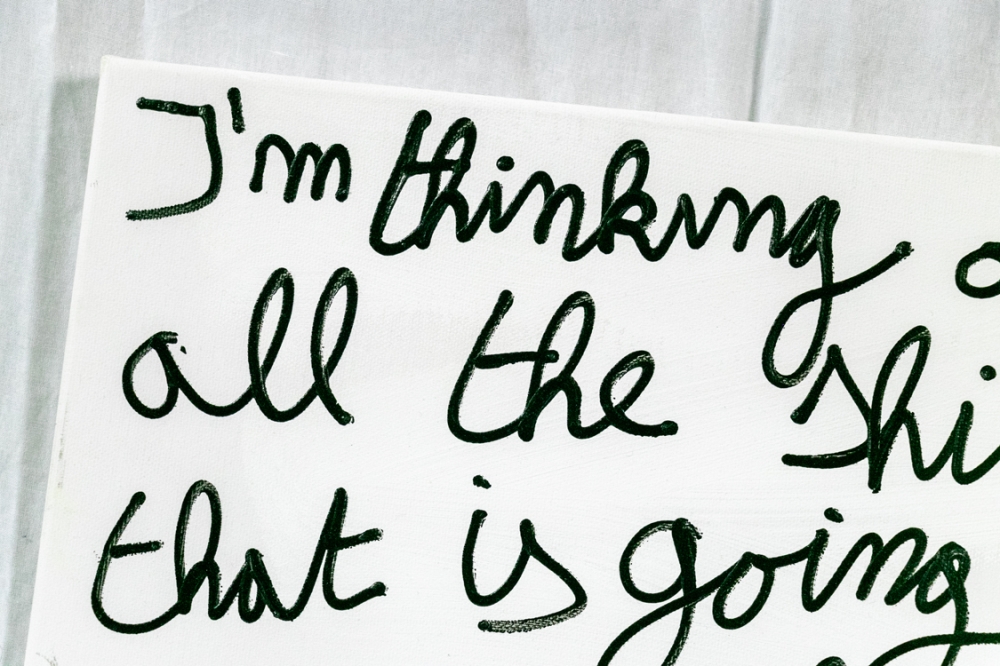 I'm thinking
all the
that is going